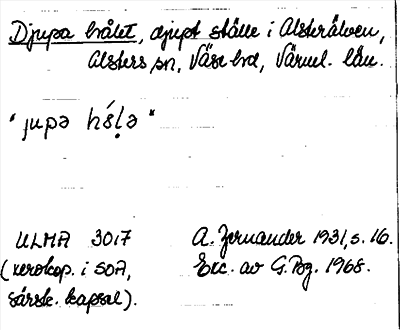 Djupa hålet, djupt ställe i Alsterälven,
Alsters sn, Väse hd, Värml. län.
"jupə hó̩ḷə"
ULMA 3017
(xerokop. i SOA,
särsk. kapsel).
A. Jernander 1931, s. 16.
Exc. av G. Bg. 1968.